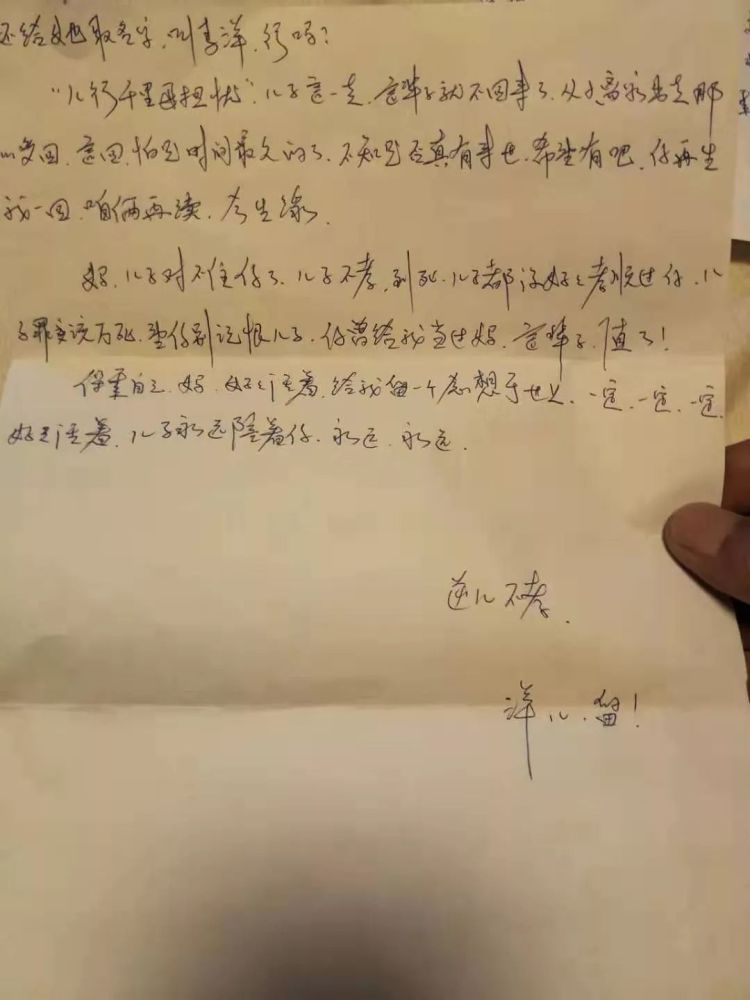 还给她取名字，叫李洋，行吗？
“儿行千里母担忧”，儿子这一走，这辈子就不回来了，从小离家出走那
么多回，这回，怕是时间最久的了，不知是否真有来世，希望有吧，你再生
我一回，咱俩再续，今生缘。
妈，儿子对不住你了，儿子不孝，到死，儿子都没好好孝顺过你，儿
子罪实该万死，望你别记恨儿子，你曾给我当过妈，这辈子，值了！
保重自己，妈，好好活着，给我留一个念想于世上，一定，一定，一定，
好好活着，儿子永远陪着你，永远，永远。
逆儿不孝，
洋儿，留！